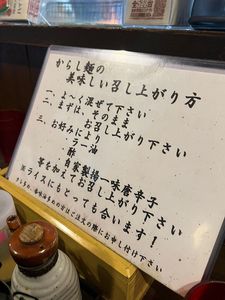 からし麺の
美味しい召し上がり方
一、よーく混ぜて下さい
二、まずは、そのまま
お召し上がり下さい
三、お好みにより
ラー油
酢
自家製揚一味唐辛子
等を加えてお召し上がり下さい
※ライスにもとっても合います！